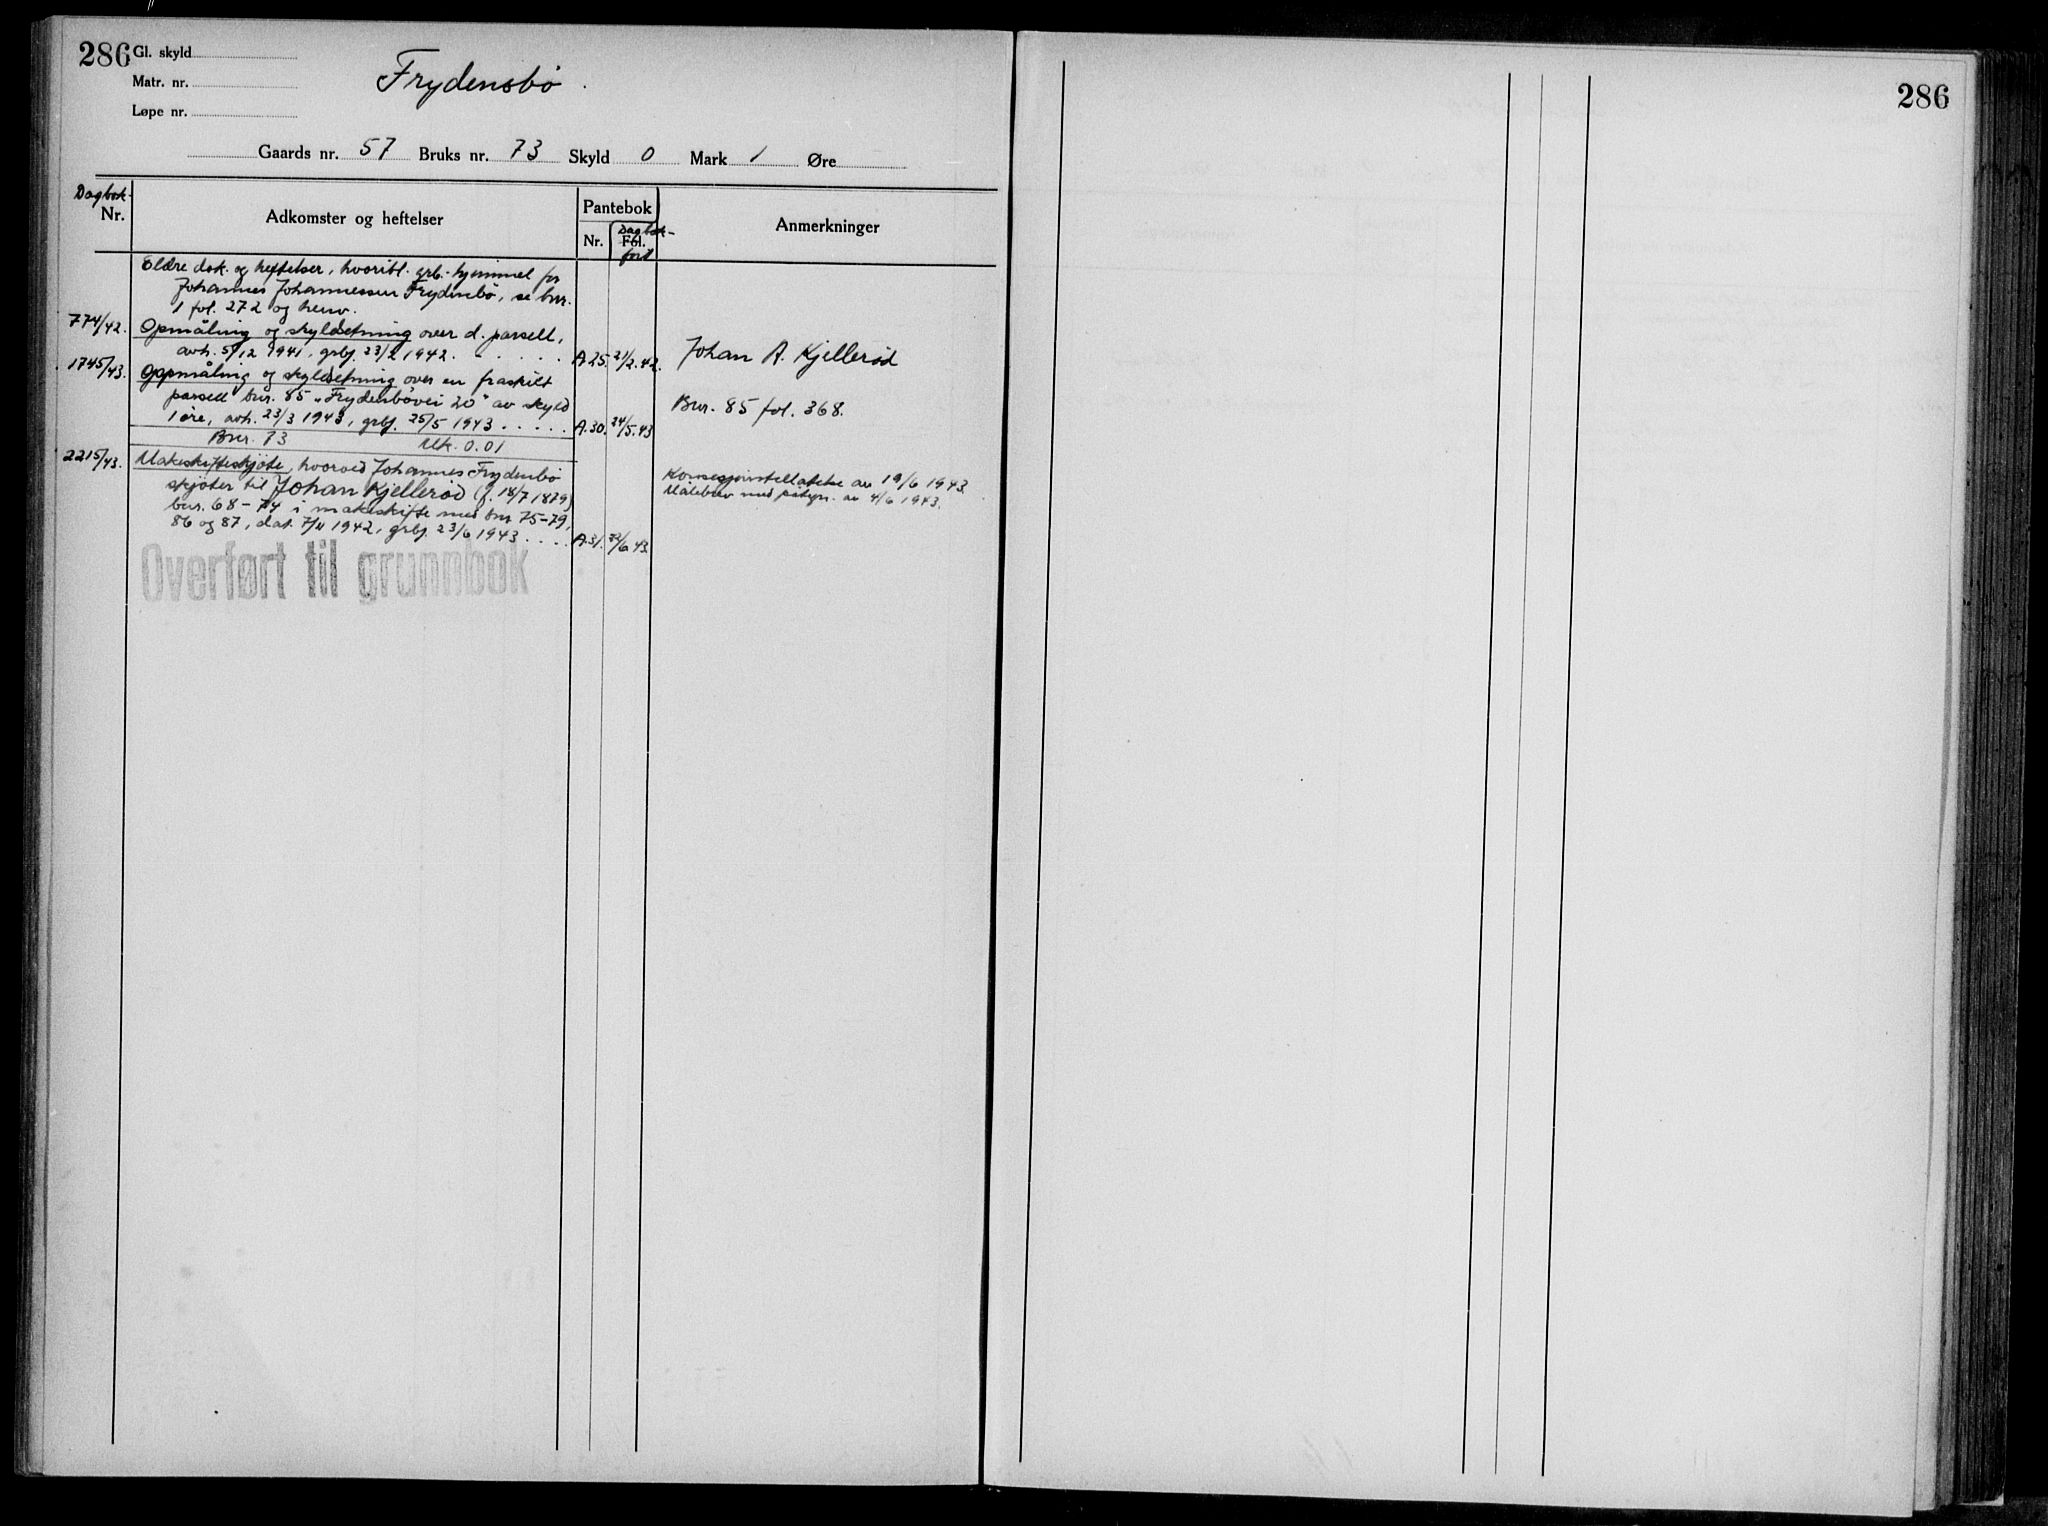 286 Gl. skyld
Matr. nr.
Løpe nr.
Frydensbø
286
Gaards nr. 57 Bruks nr. 73 Skyld 0 Mark 1 Øre
Dagbok-
Nr.
Adkomster og heftelser
Pantebok
Nr. Fol. Dagbok-
ført
Anmerkninger
Eldre dok. og heftelser, hvoribl. grb. hjemmel for
Johannes Johannessen Frydenbø, se bnr.
1 fol. 272 og henv.
774/42. Opmåling og skyldsetning over d. parsell,
avh. 5/12 1941, grbj. 23/2 1942. A.25. 21/2.42. Johan A. Kjellerød
1745/43. Oppmåling og skyldsetning over en fraskilt
parsell bnr. 85 "Frydenbøvei 20" av skyld
1 øre, avh. 23/3 1943, grbj. 25/5 1943 ..... A.30. 24/5.43 Bnr. 85 fol. 368.
Bnr. 73 Mk. 0.01
2215/43. Makeskifteskjøte, hvorved Johannes Frydenbø
skjøter til Johan Kjellerød (f. 18/7 1879)
bnr. 68-74 i makeskifte med bnr 75-79,
86 og 87, dat. 7/11 1942, grbj. 23/6 1943 .... A.31. 22/6 43.
Konsesjonstillatelse av 19/6 1943.
Målebrev med påtegn. av 4/6 1943.
Overført til grunnbok